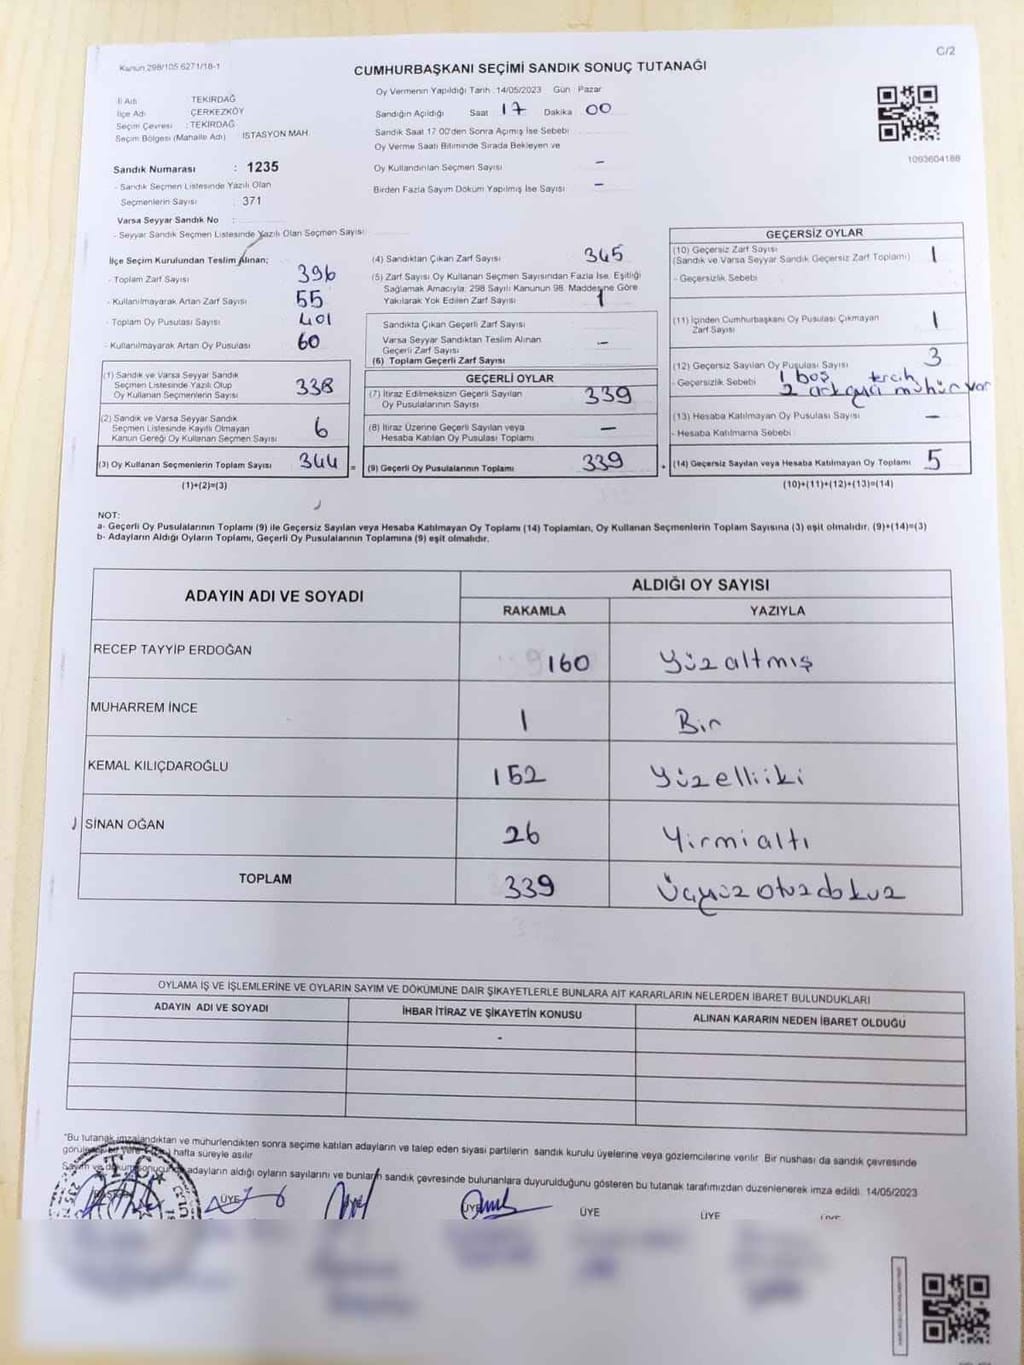 C/2
Kanun 298/105 6271/18-1
CUMHURBAŞKANI SEÇİMİ SANDIK SONUÇ TUTANAĞI
İl Adı TEKİRDAĞ
İlçe Adı ÇERKEZKÖY
Seçim Çevresi : TEKİRDAĞ
Seçim Bölgesi (Mahalle Adı) İSTASYON MAH.
Oy Vermenin Yapıldığı Tarih : 14/05/2023 Gün : Pazar
Sandığın Açıldığı Saat 17 Dakika 00
Sandık Saat 17.00'den Sonra Açılmış İse Sebebi
Oy Verme Saati Bitiminde Sırada Bekleyen ve
Oy Kullandırılan Seçmen Sayısı –
Birden Fazla Sayım Döküm Yapılmış İse Sayısı –
1093604188
Sandık Numarası : 1235
- Sandık Seçmen Listesinde Yazılı Olan
Seçmenlerin Sayısı : 371
Varsa Seyyar Sandık No :
- Seyyar Sandık Seçmen Listesinde Yazılı Olan Seçmen Sayısı
İlçe Seçim Kurulundan Teslim Alınan;
- Toplam Zarf Sayısı 396
- Kullanılmayarak Artan Zarf Sayısı 55
- Toplam Oy Pusulası Sayısı 401
- Kullanılmayarak Artan Oy Pusulası 60
(1) Sandık ve Varsa Seyyar Sandık
Seçmen Listesinde Yazılı Olup
Oy Kullanan Seçmenlerin Sayısı 338
(2) Sandık ve Varsa Seyyar Sandık
Seçmen Listesinde Kayıtlı Olmayan
Kanun Gereği Oy Kullanan Seçmen Sayısı 6
(3) Oy Kullanan Seçmenlerin Toplam Sayısı 344 =
(1)+(2)=(3)
(4) Sandıktan Çıkan Zarf Sayısı 345
(5) Zarf Sayısı Oy Kullanan Seçmen Sayısından Fazla İse, Eşitliği
Sağlamak Amacıyla; 298 Sayılı Kanunun 98. Maddesine Göre
Yakılarak Yok Edilen Zarf Sayısı 1
Sandıkta Çıkan Geçerli Zarf Sayısı
Varsa Seyyar Sandıktan Teslim Alınan
Geçerli Zarf Sayısı –
(6) Toplam Geçerli Zarf Sayısı
GEÇERLİ OYLAR
(7) İtiraz Edilmeksizin Geçerli Sayılan
Oy Pusulalarının Sayısı 339
(8) İtiraz Üzerine Geçerli Sayılan veya
Hesaba Katılan Oy Pusulası Toplamı –
(9) Geçerli Oy Pusulalarının Toplamı 339 +
GEÇERSİZ OYLAR
(10) Geçersiz Zarf Sayısı
(Sandık ve Varsa Seyyar Sandık Geçersiz Zarf Toplamı) 1
- Geçersizlik Sebebi
(11) İçinden Cumhurbaşkanı Oy Pusulası Çıkmayan
Zarf Sayısı 1
(12) Geçersiz Sayılan Oy Pusulası Sayısı 3
- Geçersizlik Sebebi 1 boş tercih
2 arkayı mühür var
(13) Hesaba Katılmayan Oy Pusulası Sayısı –
- Hesaba Katılmama Sebebi :
(14) Geçersiz Sayılan veya Hesaba Katılmayan Oy Toplamı 5
(10)+(11)+(12)+(13)=(14)
NOT:
a- Geçerli Oy Pusulalarının Toplamı (9) ile Geçersiz Sayılan veya Hesaba Katılmayan Oy Toplamı (14) Toplamları, Oy Kullanan Seçmenlerin Toplam Sayısına (3) eşit olmalıdır. (9)+(14)=(3)
b- Adayların Aldığı Oyların Toplamı, Geçerli Oy Pusulalarının Toplamına (9) eşit olmalıdır.
ADAYIN ADI VE SOYADI ALDIĞI OY SAYISI
RAKAMLA YAZIYLA
RECEP TAYYİP ERDOĞAN 160 Yüzaltmış
MUHARREM İNCE 1 Bir
KEMAL KILIÇDAROĞLU 152 Yüzelliiki
SİNAN OĞAN 26 Yirmialtı
TOPLAM 339 Üçyüzotuzdokuz
OYLAMA İŞ VE İŞLEMLERİNE VE OYLARIN SAYIM VE DÖKÜMÜNE DAİR ŞİKAYETLERLE BUNLARA AİT KARARLARIN NELERDEN İBARET BULUNDUKLARI
ADAYIN ADI VE SOYADI İHBAR İTİRAZ VE ŞİKAYETİN KONUSU ALINAN KARARIN NEDEN İBARET OLDUĞU
-
"Bu tutanak imzalandıktan ve mühürlendikten sonra seçime katılan adayların ve talep eden siyasi partilerin sandık kurulu üyelerine veya gözlemcilerine verilir. Bir nüshası da sandık çevresinde
görülebilir bir yere hafta süreyle asılır.
Sayım ve döküm sonucunda adayların aldığı oyların sayılarını ve bunların sandık çevresinde bulunanlara duyurulduğunu gösteren bu tutanak tarafımızdan düzenlenerek imza edildi. 14/05/2023
T.C.
BAŞKAN ÜYE ÜYE ÜYE ÜYE ÜYE